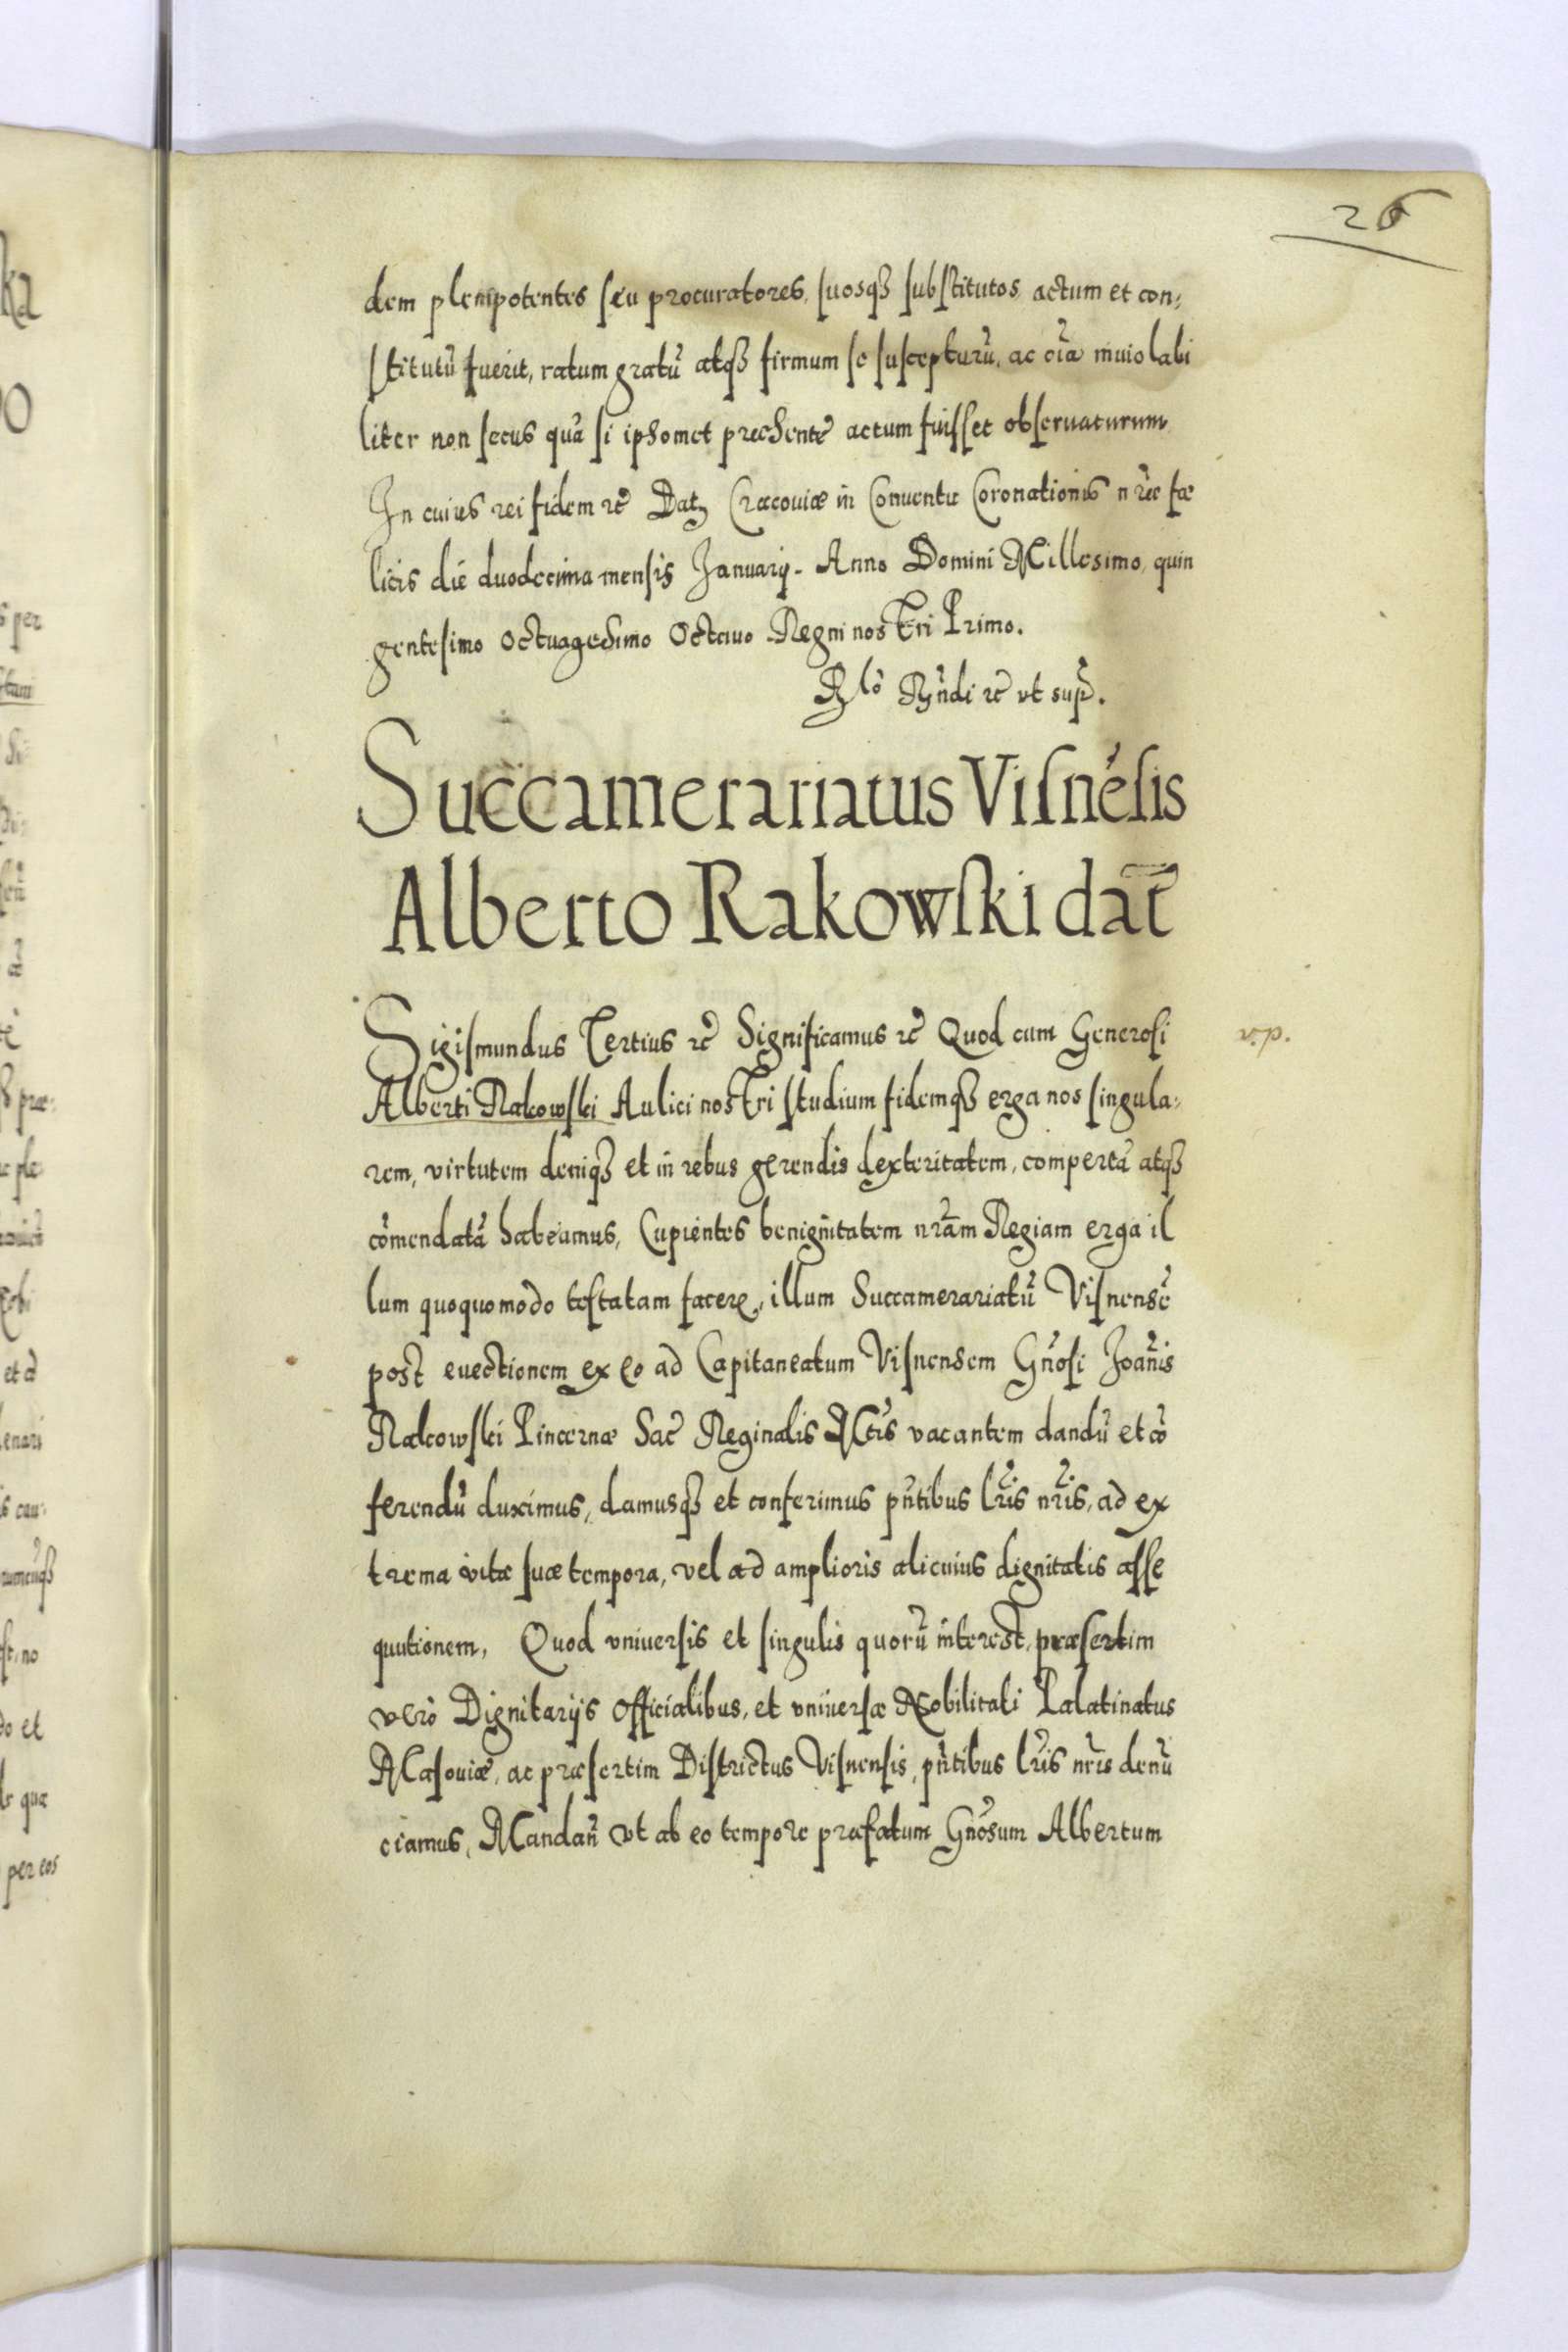 26
dem plenipotentes seu procuratores, suosq₃ substitutos actum et con:
stitutũ fuerit, ratum gratũ atq₃ firmum se suscepturũ, ac oĩa inuiolabi
liter non secus quã si ipsomet præsente actum fuisset obseruaturum
In cuius rei fidem etc̃ Datʒ Cracouiæ in Conuentu Coronationis nr̃æ fæ
licis die duodecima mensis Januarij. Anno Domini Millesimo, quin
gentesimo Octuagesimo Octauo Regni nostri Primo.
Rlõ Rñdi etc̃ vt supr̃.
Succamerariatus Visnẽsis
Alberto Rakowski dat̃
Sigismundus Tertius etc̃ Significamus etc̃ Quod cum Generosi
Alberti Rakowski Aulici nostri studium fidemq₃ erga nos singula:
rem, virtutem deniq₃ et in rebus gerendis dexteritatem, compertã atq₃
cõmendatã habeamus, Cupientes benignitatem nr̃am Regiam erga il
lum quoquomodo testatam facere, illum Succamerariatũ Visnensẽ
post euectionem ex eo ad Capitaneatum Visnensem Gñosi Joañis
Rakowski Pincernæ Sac̃ Reginalis Mt̃is vacantem dandũ et cõ
ferendũ duximus, damusq₃ et conferimus pñtibus lr̃is nr̃is, ad ex
trema vitæ suæ tempora, vel ad amplioris alicuius dignitatis asse
quutionem, Quod vniuersis et singulis quorũ interest, præsertim
vero Dignitarijs Officialibus, et vniuersæ Nobilitati Palatinatus
Masouiæ, ac præsertim Districtus Visnensis, pñtibus lr̃is nr̃is denũ
ciamus, Mandañ vt ab eo tempore præfatum Gñosum Albertum